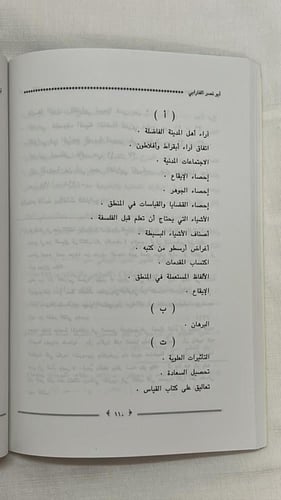 أبو نصر الفارابي
( أ )
آراء أهل المدينة الفاضلة .
اتفاق آراء أبقراط وأفلاطون .
الاجتماعات المدنية .
إحصاء الإيقاع .
إحصاء الجوهر .
إحصاء القضايا والقياسات في المنطق .
الأشياء التي يحتاج أن تعلم قبل الفلسفة .
أصناف الأشياء البسيطة .
أغراض أرسطو من كتبه .
اكتساب المقدمات .
الألفاظ المستعملة في المنطق .
الإيقاع .
( ب )
البرهان .
( ت )
التأثيرات العلوية .
تحصيل السعادة .
تعاليق على كتاب القياس .
١١٠